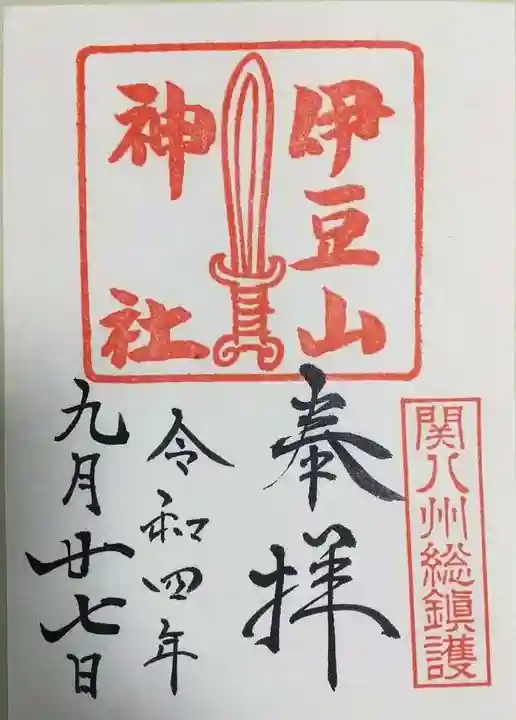 伊豆山
神社
関八州総鎮護
奉拝
令和四年
九月廿七日